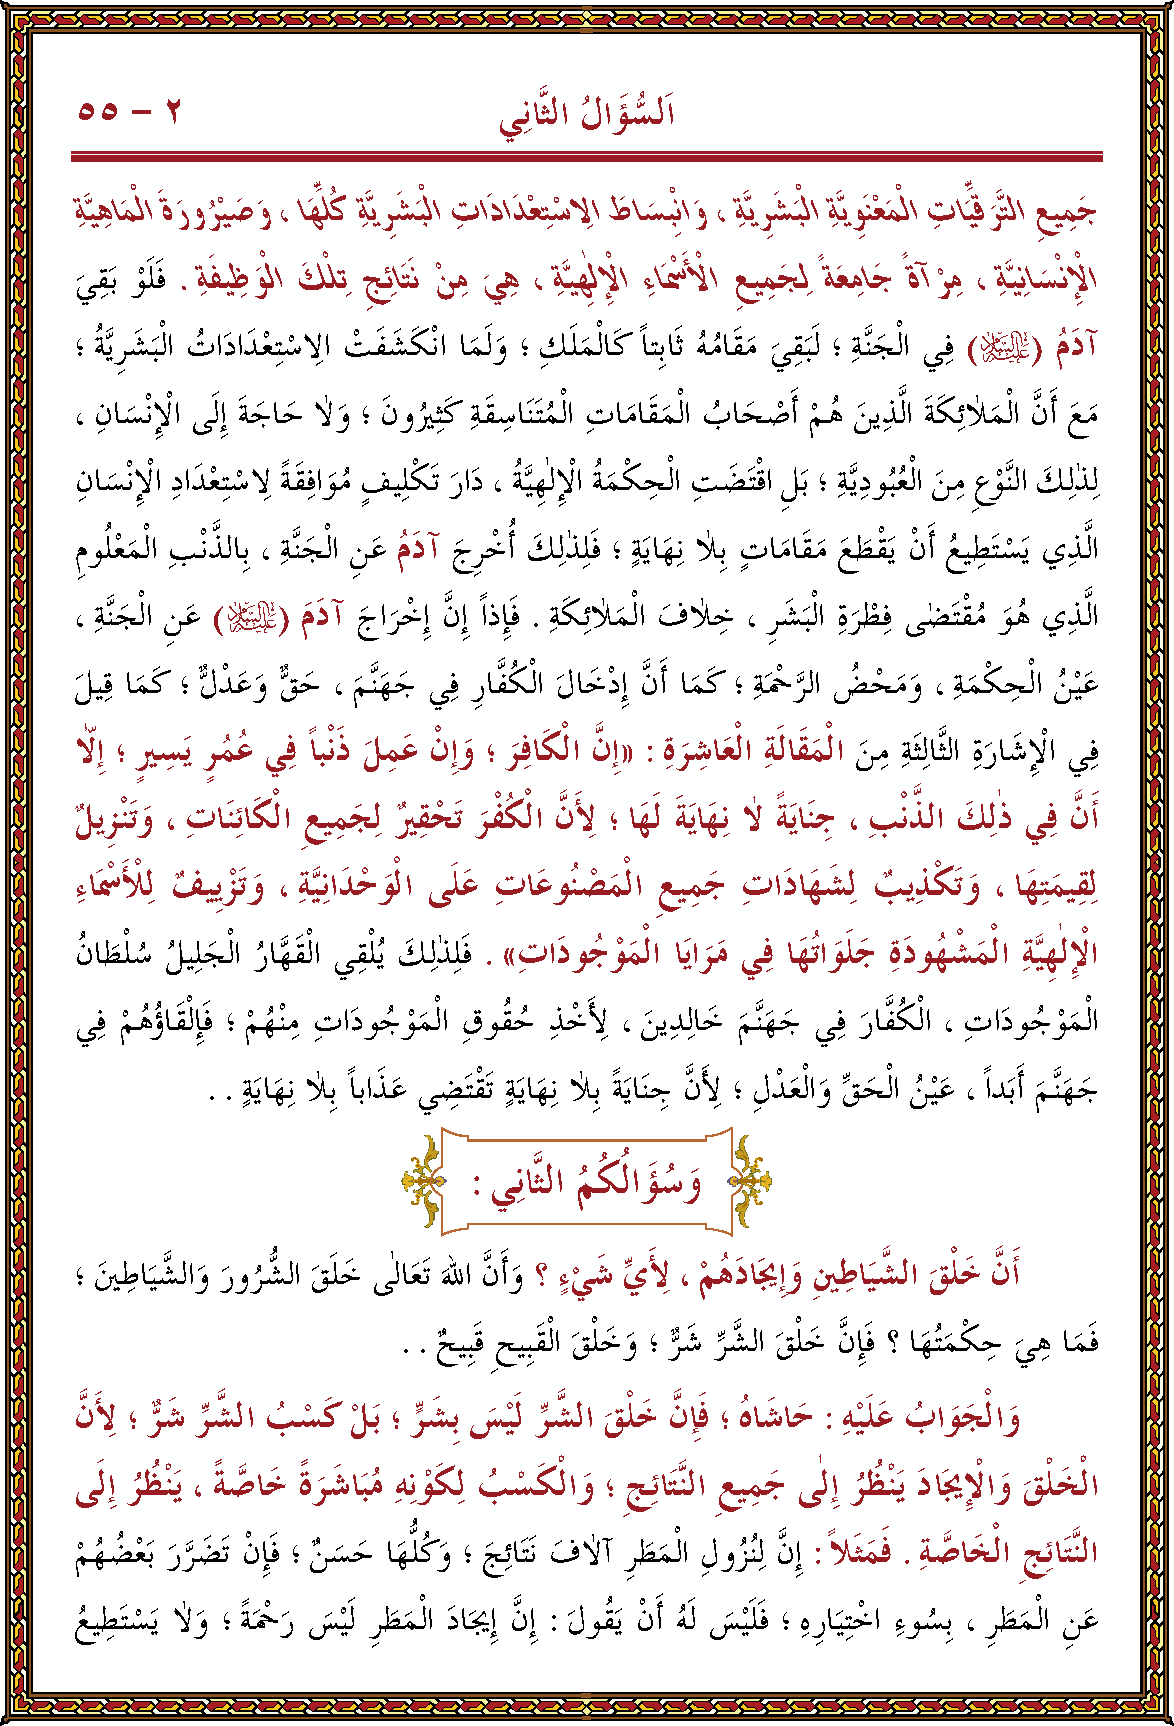 اَلسُّؤَالُ الثَّانِي
٢ - ٥٥
جَمِيعِ التَّرَقِّيَاتِ الْمَعْنَوِيَّةِ الْبَشَرِيَّةِ ، وَانْبِسَاطَ الِاسْتِعْدَادَاتِ الْبَشَرِيَّةِ كُلِّهَا ، وَصَيْرُورَةَ الْمَاهِيَّةِ
الْإِنْسَانِيَّةِ ، مِرْآةً جَامِعَةً لِجَمِيعِ الْأَسْمَاءِ الْإِلٰهِيَّةِ ، هِيَ مِنْ نَتَائِجِ تِلْكَ الْوَظِيفَةِ . فَلَوْ بَقِيَ
آدَمُ (عَلَيْهِ السَّلَامُ) فِي الْجَنَّةِ ؛ لَبَقِيَ مَقَامُهُ ثَابِتاً كَالْمَلَكِ ؛ وَلَمَا انْكَشَفَتْ الِاسْتِعْدَادَاتُ الْبَشَرِيَّةُ ؛
مَعَ أَنَّ الْمَلَائِكَةَ الَّذِينَ هُمْ أَصْحَابُ الْمَقَامَاتِ الْمُتَنَاسِقَةِ كَثِيرُونَ ؛ وَلَا حَاجَةَ إِلَى الْإِنْسَانِ ،
لِذٰلِكَ النَّوْعِ مِنَ الْعُبُودِيَّةِ ؛ بَلِ اقْتَضَتِ الْحِكْمَةُ الْإِلٰهِيَّةُ ، دَارَ تَكْلِيفٍ مُوَافِقَةً لِاسْتِعْدَادِ الْإِنْسَانِ
الَّذِي يَسْتَطِيعُ أَنْ يَقْطَعَ مَقَامَاتٍ بِلَا نِهَايَةٍ ؛ فَلِذٰلِكَ أُخْرِجَ آدَمُ عَنِ الْجَنَّةِ ، بِالذَّنْبِ الْمَعْلُومِ
الَّذِي هُوَ مُقْتَضٰى فِطْرَةِ الْبَشَرِ ، خِلَافَ الْمَلَائِكَةِ . فَإِذاً إِنَّ إِخْرَاجَ آدَمَ (عَلَيْهِ السَّلَامُ) عَنِ الْجَنَّةِ ،
عَيْنُ الْحِكْمَةِ ، وَمَحْضُ الرَّحْمَةِ ؛ كَمَا أَنَّ إِدْخَالَ الْكُفَّارِ فِي جَهَنَّمَ ، حَقٌّ وَعَدْلٌ ؛ كَمَا قِيلَ
فِي الْإِشَارَةِ الثَّالِثَةِ مِنَ الْمَقَالَةِ الْعَاشِرَةِ : «إِنَّ الْكَافِرَ ؛ وَإِنْ عَمِلَ ذَنْباً فِي عُمُرٍ يَسِيرٍ ؛ إِلَّا
أَنَّ فِي ذٰلِكَ الذَّنْبِ ، جِنَايَةً لَا نِهَايَةَ لَهَا ؛ لِأَنَّ الْكُفْرَ تَحْقِيرٌ لِجَمِيعِ الْكَائِنَاتِ ، وَتَنْزِيلٌ
لِقِيمَتِهَا ، وَتَكْذِيبٌ لِشَهَادَاتِ جَمِيعِ الْمَصْنُوعَاتِ عَلَى الْوَحْدَانِيَّةِ ، وَتَزْيِيفٌ لِلْأَسْمَاءِ
الْإِلٰهِيَّةِ الْمَشْهُودَةِ جَلَوَاتُهَا فِي مَرَايَا الْمَوْجُودَاتِ» . فَلِذٰلِكَ يُلْقِي الْقَهَّارُ الْجَلِيلُ سُلْطَانُ
الْمَوْجُودَاتِ ، الْكُفَّارَ فِي جَهَنَّمَ خَالِدِينَ ، لِأَخْذِ حُقُوقِ الْمَوْجُودَاتِ مِنْهُمْ ؛ فَإِلْقَاؤُهُمْ فِي
جَهَنَّمَ أَبَداً ، عَيْنُ الْحَقِّ وَالْعَدْلِ ؛ لِأَنَّ جِنَايَةً بِلَا نِهَايَةٍ تَقْتَضِي عَذَاباً بِلَا نِهَايَةٍ . .
وَسُؤَالُكُمُ الثَّانِي :
أَنَّ خَلْقَ الشَّيَاطِينِ وَإِيجَادَهُمْ ، لِأَيِّ شَيْءٍ ؟ وَأَنَّ اللهَ تَعَالٰى خَلَقَ الشُّرُورَ وَالشَّيَاطِينَ ؛
فَمَا هِيَ حِكْمَتُهَا ؟ فَإِنَّ خَلْقَ الشَّرِّ شَرٌّ ؛ وَخَلْقَ الْقَبِيحِ قَبِيحٌ . .
وَالْجَوَابُ عَلَيْهِ : حَاشَاهُ ؛ فَإِنَّ خَلْقَ الشَّرِّ لَيْسَ بِشَرٍّ ؛ بَلْ كَسْبُ الشَّرِّ شَرٌّ ؛ لِأَنَّ
الْخَلْقَ وَالْإِيجَادَ يَنْظُرُ إِلٰى جَمِيعِ النَّتَائِجِ ؛ وَالْكَسْبُ لِكَوْنِهِ مُبَاشَرَةً خَاصَّةً ، يَنْظُرُ إِلَى
النَّتَائِجِ الْخَاصَّةِ . فَمَثَلاً : إِنَّ لِنُزُولِ الْمَطَرِ آلَافَ نَتَائِجَ ؛ وَكُلُّهَا حَسَنٌ ؛ فَإِنْ تَضَرَّرَ بَعْضُهُمْ
عَنِ الْمَطَرِ ، بِسُوءِ اخْتِيَارِهِ ؛ فَلَيْسَ لَهُ أَنْ يَقُولَ : إِنَّ إِيجَادَ الْمَطَرِ لَيْسَ رَحْمَةً ؛ وَلَا يَسْتَطِيعُ